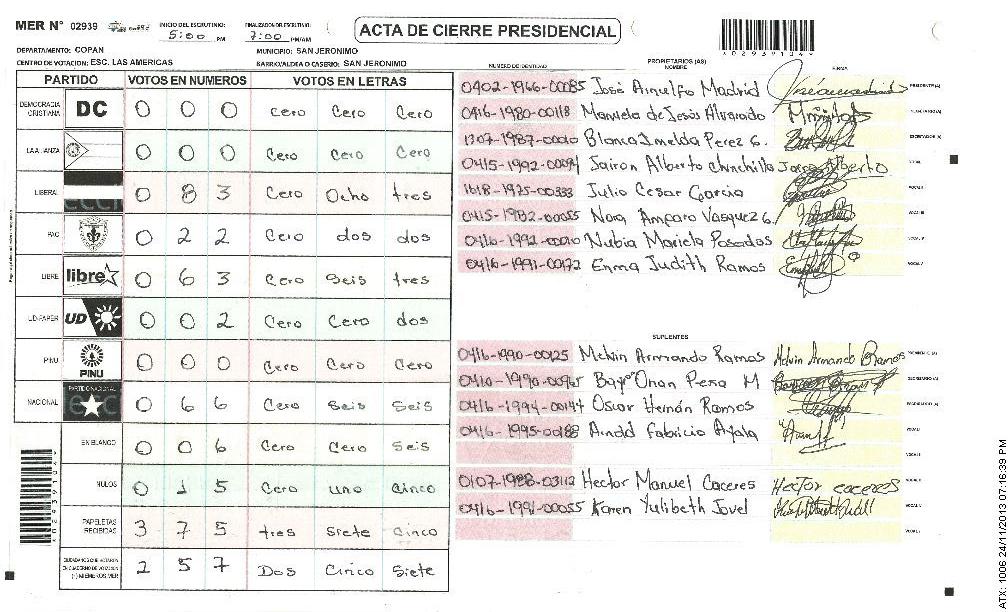 MER N° 02939 INICIO DEL ESCRUTINIO: 5:00 PM FINALIZACION DEL ESCRUTINIO: 7:00 PM/AM ACTA DE CIERRE PRESIDENCIAL
DEPARTAMENTO: COPAN MUNICIPIO: SAN JERONIMO
CENTRO DE VOTACION: ESC. LAS AMERICAS BARRIO/ALDEA O CASERIO: SAN JERONIMO
PARTIDO VOTOS EN NUMEROS VOTOS EN LETRAS
DEMOCRACIA CRISTIANA DC 0 0 0 cero Cero Cero
LA ALIANZA 0 0 0 Cero Cero Cero
LIBERAL 0 8 3 Cero Ocho tres
PAC 0 2 2 Cero dos dos
LIBRE libre 0 6 3 Cero Seis tres
UD-FAPER UD 0 0 2 Cero Cero dos
PINU PINU 0 0 0 Cero Cero Cero
NACIONAL PARTIDO NACIONAL 0 6 6 Cero Seis Seis
EN BLANCO 0 0 6 Cero Cero Seis
NULOS 0 1 5 Cero uno Cinco
PAPELETAS RECIBIDAS 3 7 5 tres Siete Cinco
CIUDADANOS QUE VOTARON EN CUADERNO DE VOTACION (*) MIEMBROS MER 2 5 7 Dos Cinco Siete
NUMERO DE IDENTIDAD PROPIETARIOS (AS) NOMBRE FIRMA
0402-1966-00085 José Arnulfo Madrid PRESIDENTE (A)
0416-1980-00118 Manuela de Jesús Alvarado
Blanca Imelda Perez G.
Jairon Alberto Chinchilla
1618-1975-00333 Julio Cesar Garcia
0415-1982-00055 Nora Amparo Vasquez G.
Nubia Mariela Posadas
0416-1991-00172 Enma Judith Ramos
SUPLENTES
0416-1990-00125 Melvin Armando Ramos Melvin Armando Ramos
Onan Peña M
0416-1994-00144 Oscar Hernán Ramos
0416-1995-00188 Arnold Fabricio Ayala
0107-1988-03112 Hector Manuel Caceres Hector caceres
0416-1991-00055 Karen Yulibeth Jovel
ATX: 1006 24/11/2013 07:16:39 PM